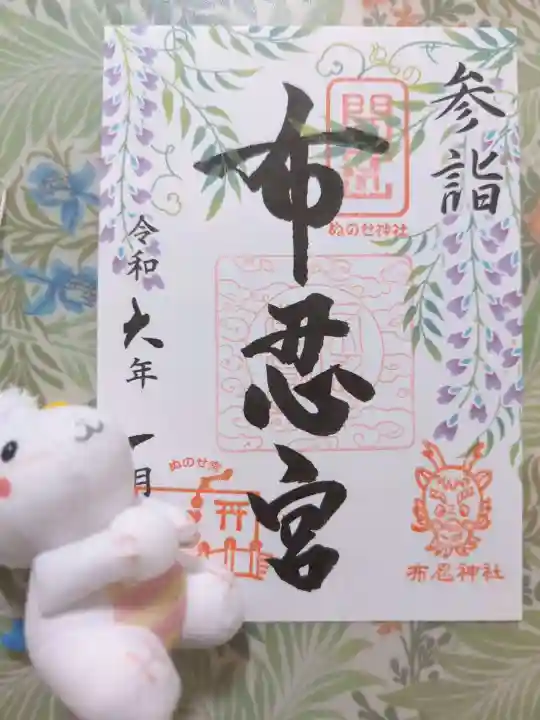 参詣
ぬのせ
開運
ぬのせ神社
布忍宮
令和六年
一月
ぬのせ
布忍神社